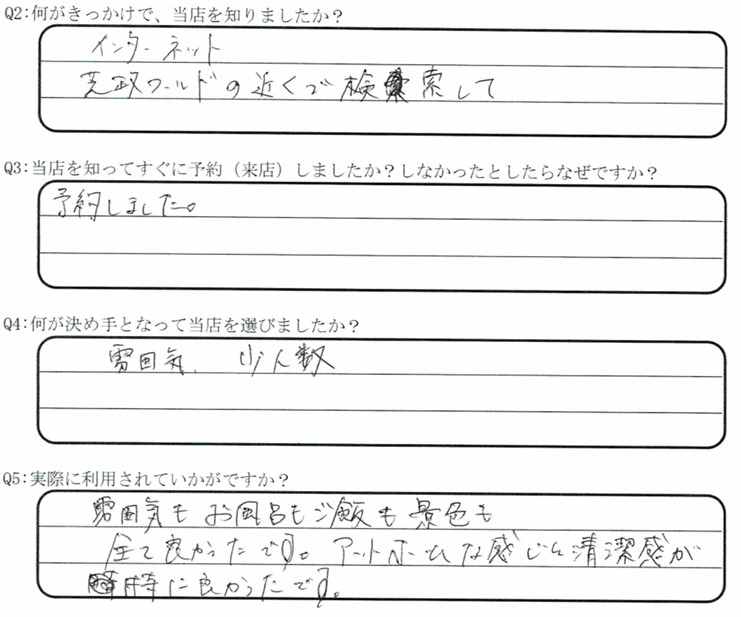 Q2:何がきっかけで、当店を知りましたか？
インターネット
芝政ワールドの近くで検索して
Q3:当店を知ってすぐに予約（来店）しましたか？しなかったとしたらなぜですか？
予約しました。
Q4:何が決め手となって当店を選びましたか？
雰囲気、少人数
Q5:実際に利用されていかがですか？
雰囲気もお風呂もご飯も景色も
全て良かったです。アットホームな感じと清潔感が
特に良かったです。